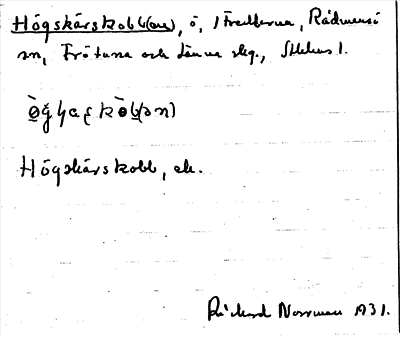 Högskärskobb(en), ö, i Fredlarna, Rådmansö
sn, Frötuna och Länna skg., Sthlms l.
Högskärskobb, ek.
Rickard Norrman 1931.